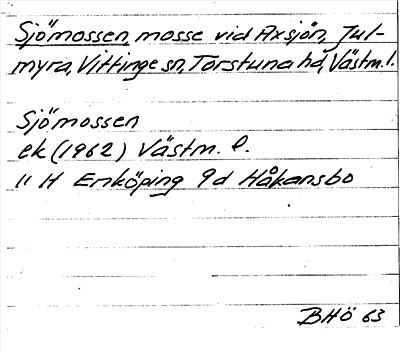 Sjömossen, mosse vid Axsjön, Jul-
myra, Vittinge sn, Torstuna hd, Västm.l.
Sjömossen
ek (1962) Västm. l.
11 H Enköping 9d Håkansbo
BHÖ 63